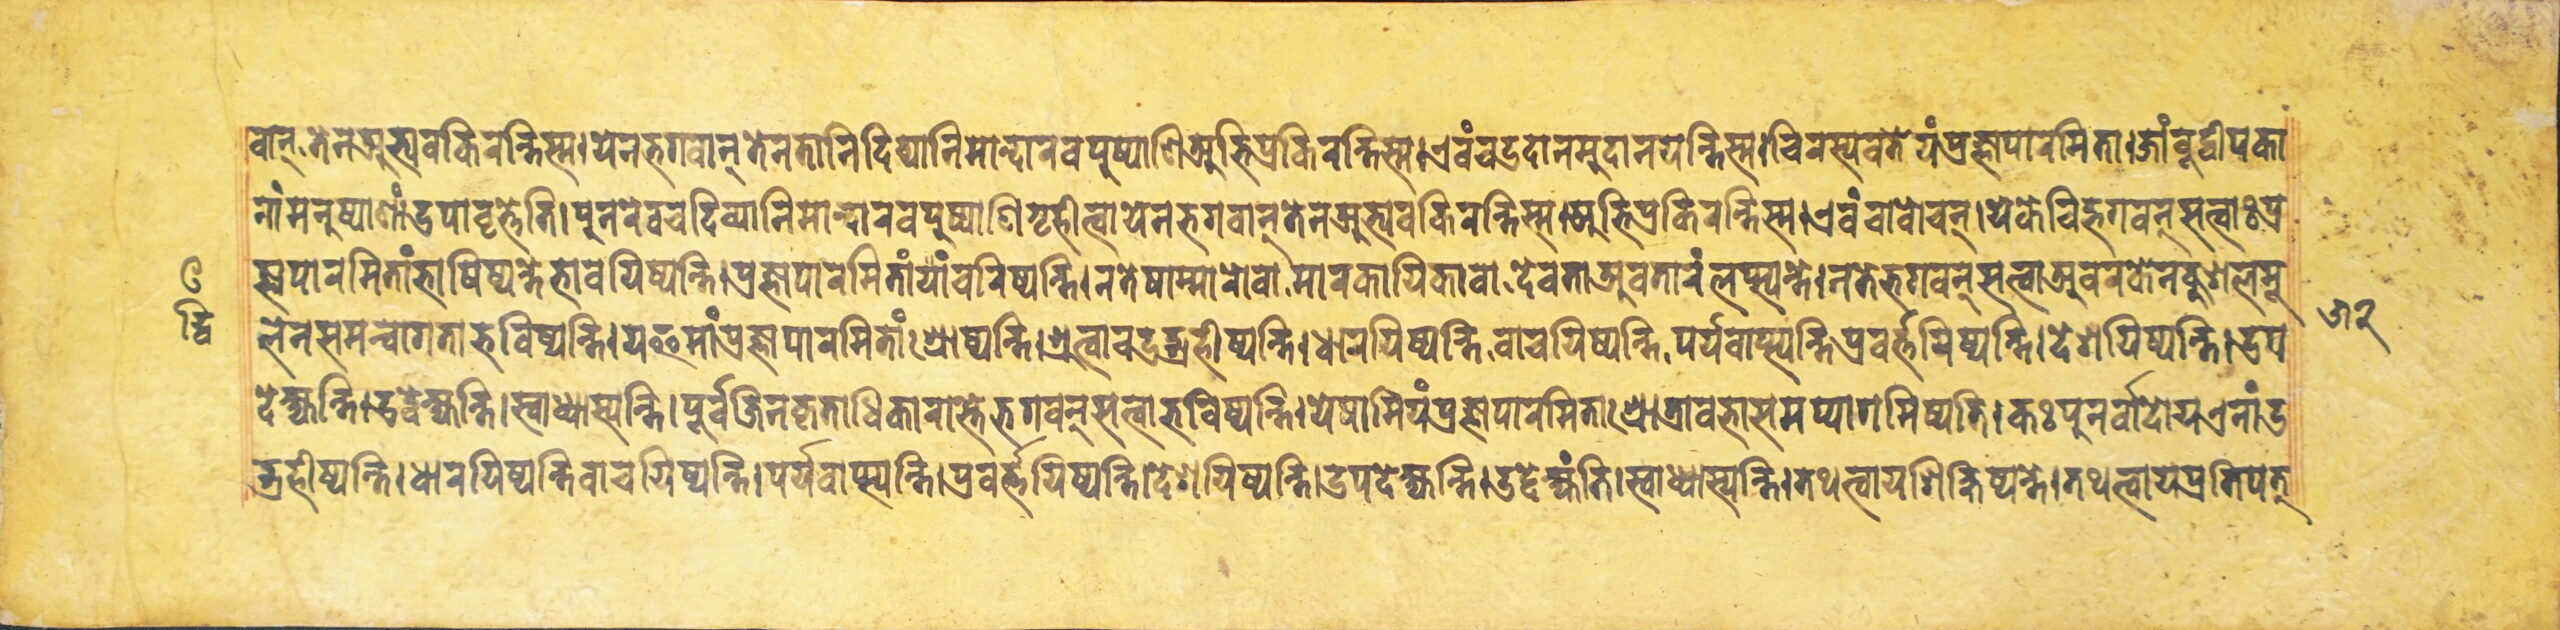 वान् तेन अभ्यवकिरन्ति स्म। येन भगवान् तेन तानि दिव्यानि मान्दारवपुष्पाणि अभिप्रकिरन्ति स्म। एवं च उदानमुदानयन्ति स्म। चिरस्य वतेयं प्रज्ञापारमिता। जांवूद्वीपका
नां मनुष्याणां उपावृत्तेति। पुनरेव च दिव्यानि मान्दारवपुष्पाणि गृहीत्वा येन भगवान् तेन अभ्यवकिरन्ति स्म। अभिप्रकिरन्ति स्म। एवं चावोचन्। ये केचिद्भगवन् सत्वाः प्र
ज्ञापारमितां भाषिष्यन्ते भावयिष्यन्ति। प्रज्ञापारमितायां चरिष्यन्ति। न तेषाम्मारो वा मारकायिका वा देवता अवतारं लप्स्यन्ते। न ते भगवन् सत्वा अवरकेन कुशलमू
लेन समन्वागता भविष्यन्ति। य इमां प्रज्ञापारमितां श्रोष्यन्ति। श्रुत्वा च उद्ग्रहीष्यन्ति। धारयिष्यन्ति वाचयिष्यन्ति पर्यवाप्स्यन्ति प्रवर्त्तयिष्यन्ति। देशयिष्यन्ति। उप
देक्ष्यन्ति। उद्देक्ष्यन्ति। स्वाध्यास्यन्ति। पूर्वजिनकृताधिकारास्ते भगवन् सत्वा भविष्यन्ति। येषामियं प्रज्ञापारमिता श्रोत्रावभासमप्यागमिष्यति। कः पुनर्वादो य एनां उ
द्ग्रहीष्यन्ति। धारयिष्यन्ति वाचयिष्यन्ति। पर्यवाप्स्यन्ति। प्रवर्त्तयिष्यन्ति। देशयिष्यन्ति। उपदेक्ष्यन्ति। उद्देक्ष्यंति। स्वाध्यास्यन्ति। तथत्वाय शिक्षिष्यन्ते। तथत्वाय प्रतिपत्
द्वि
७२